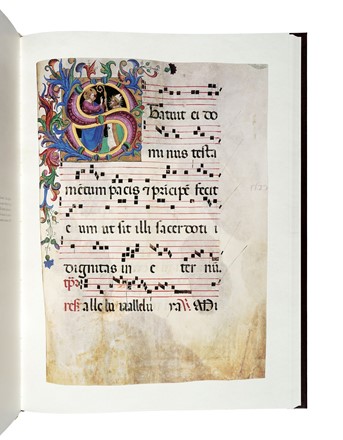 S tatuit ei do
minus testa
mētum pacis ⁊ prīcipē fecit
eum ut sit illi sacerdoti i
dignitas in e ter nū.
alle lu ya